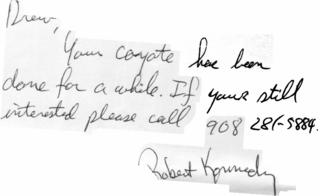 Drew,
Your coyote has been
done for a while. If your still
interested please call 908 281-5884.
Robert Kennedy